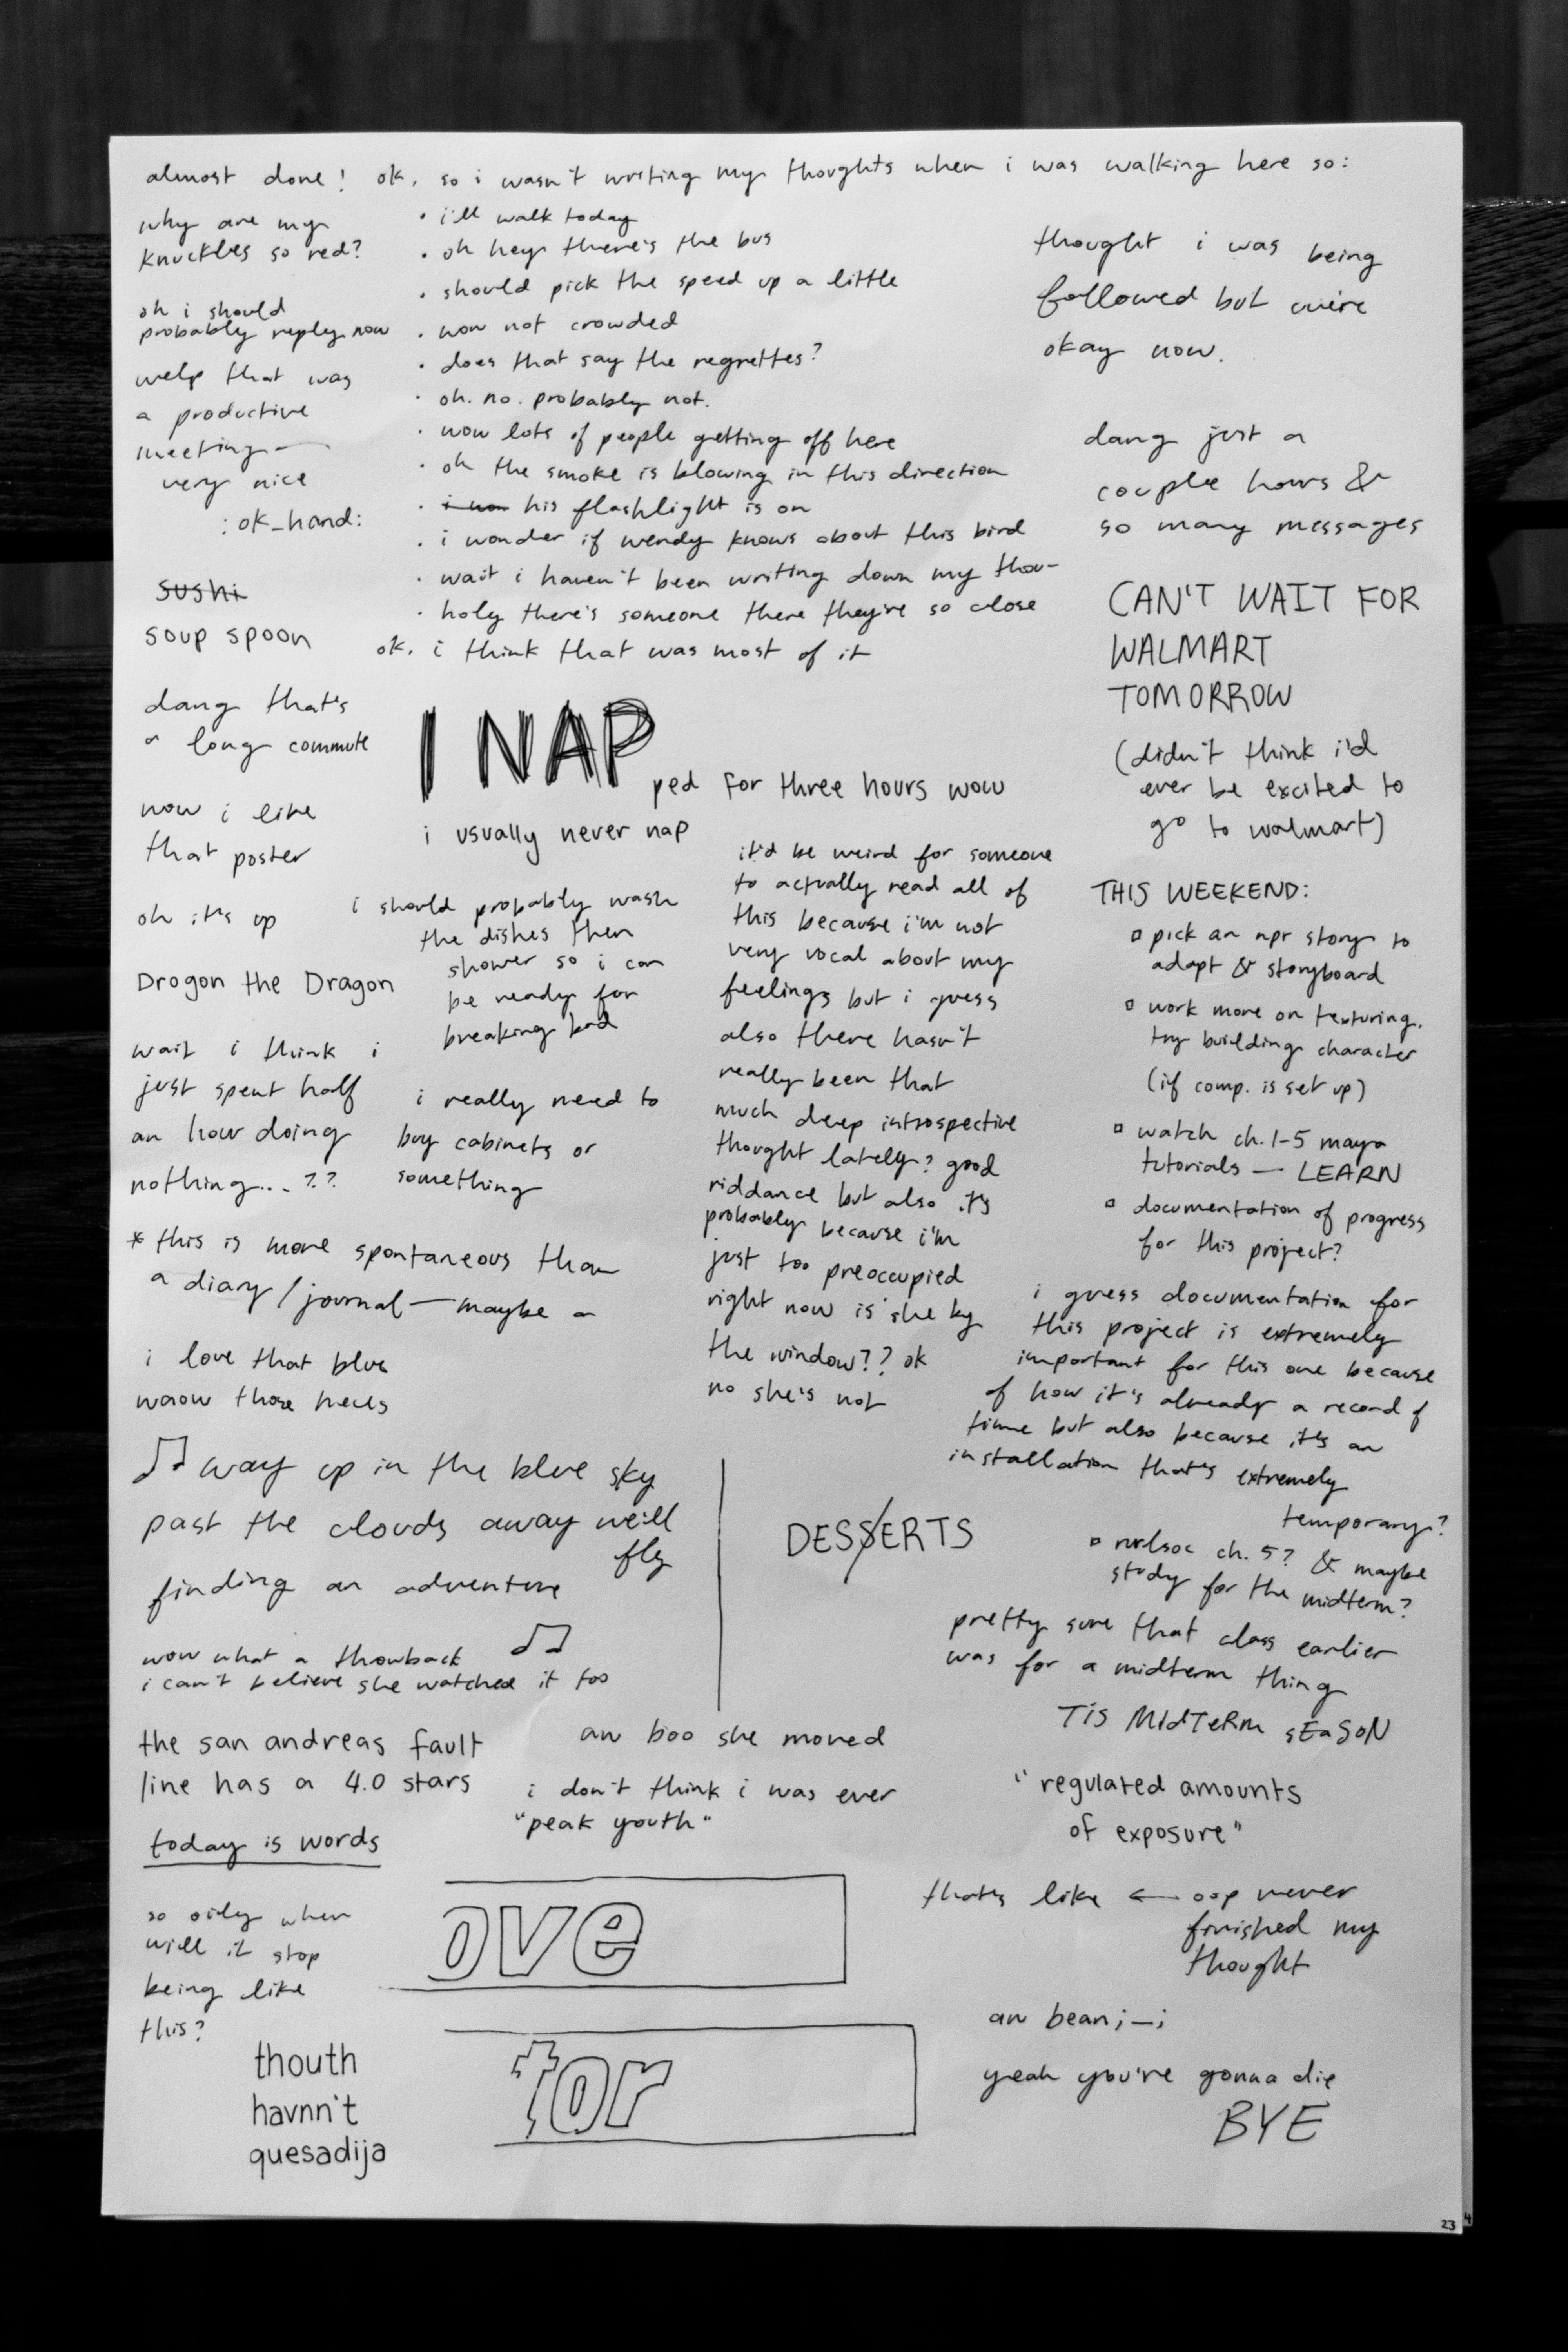 almost done! ok. so i wasn't writing my thoughts when i was walking here so:
why are my
knuckles so red?
oh i should
probably reply now
welp that was
a productive
meeting—
very nice
:ok_hand:
sushi
soup spoon
dang that's
a long commute
wow i like
that poster
oh it's up
Drogon the Dragon
wait i think i
just spent half
an hour doing
nothing...??
* this is more spontaneous than
a diary/journal—maybe a
i love that blue
waow those heels
♫ way up in the blue sky
past the clouds away we'll
fly
finding an adventure
♫
wow what a throwback
i can't believe she watched it too
the san andreas fault
line has a 4.0 stars
today is words
so oily when
will it stop
being like
this?
thouth
havnn't
quesadija
• i'll walk today
• oh hey there's the bus
• should pick the speed up a little
• wow not crowded
• does that say the regrettes?
• oh. no. probably not.
• wow lots of people getting off here
• oh the smoke is blowing in this direction
• his flashlight is on
• i wonder if wendy knows about this bird
• wait i haven't been writing down my thou-
• holy there's someone there they're so close
ok. i think that was most of it
I NAP
ped for three hours wow
i usually never nap
i should probably wash
the dishes then
shower so i can
be ready for
breaking bad
i really need to
buy cabinets or
something
it'd be weird for someone
to actually read all of
this because i'm not
very vocal about my
feelings but i guess
also there hasn't
really been that
much deep introspective
thought lately? good
riddance but also it's
probably because i'm
just too preoccupied
right now is she by
the window?? ok
no she's not
DESSERTS
aw boo she moved
i don't think i was ever
"peak youth"
ove
tor
thought i was being
followed but we're
okay now.
dang just a
couple hours &
so many messages
CAN'T WAIT FOR
WALMART
TOMORROW
(didn't think i'd
ever be excited to
go to walmart)
THIS WEEKEND:
▫ pick an npr story to
adapt & storyboard
▫ work more on texturing.
try building character
(if comp. is set up)
▫ watch ch.1-5 maya
tutorials — LEARN
▫ documentation of progress
for this project?
i guess documentation for
this project is extremely
important for this one because
of how it's already a record of
time but also because it's an
installation that's extremely
temporary?
▫ ch. 5? & maybe
study for the midterm?
pretty sure that class earlier
was for a midterm thing
TiS MidTeRm sEaSoN
"regulated amounts
of exposure"
that's like ← oop never
finished my
thought
aw bean ;_;
yeah you're gonna die
BYE
23
4